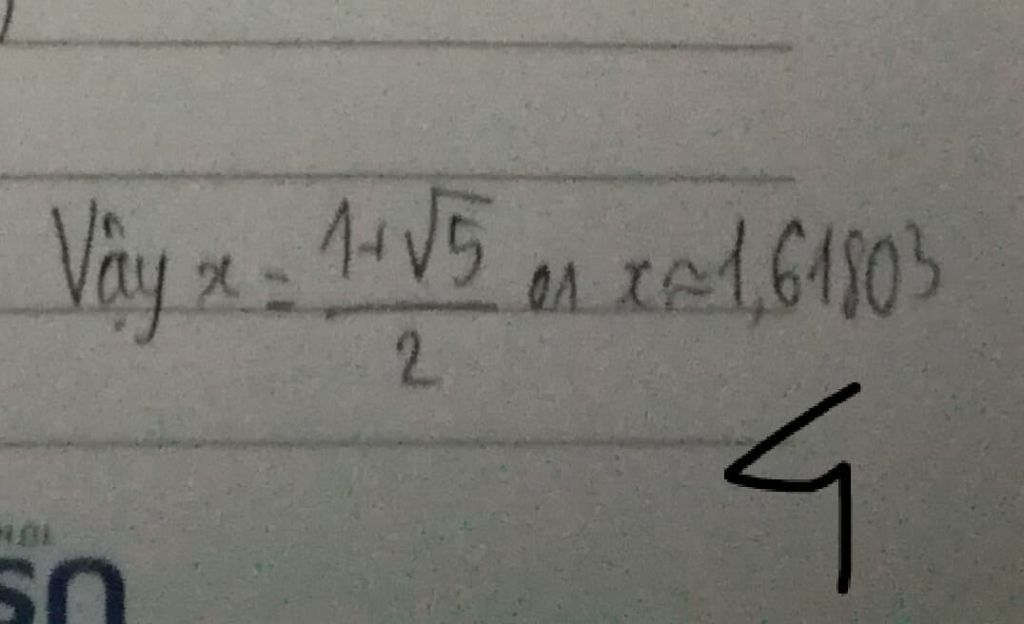 Vậy x = \frac{1+\sqrt{5}}{2} or x ≈ 1,61803
4
sn